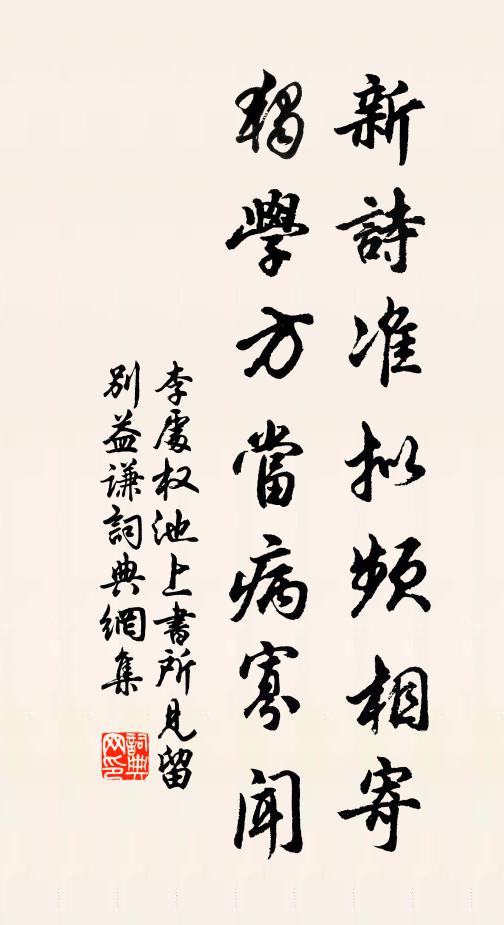 新詩准拟頻相寄
獨學方當病寡聞
李處权池上書所見留
別益谦詞典網集
詞典网印